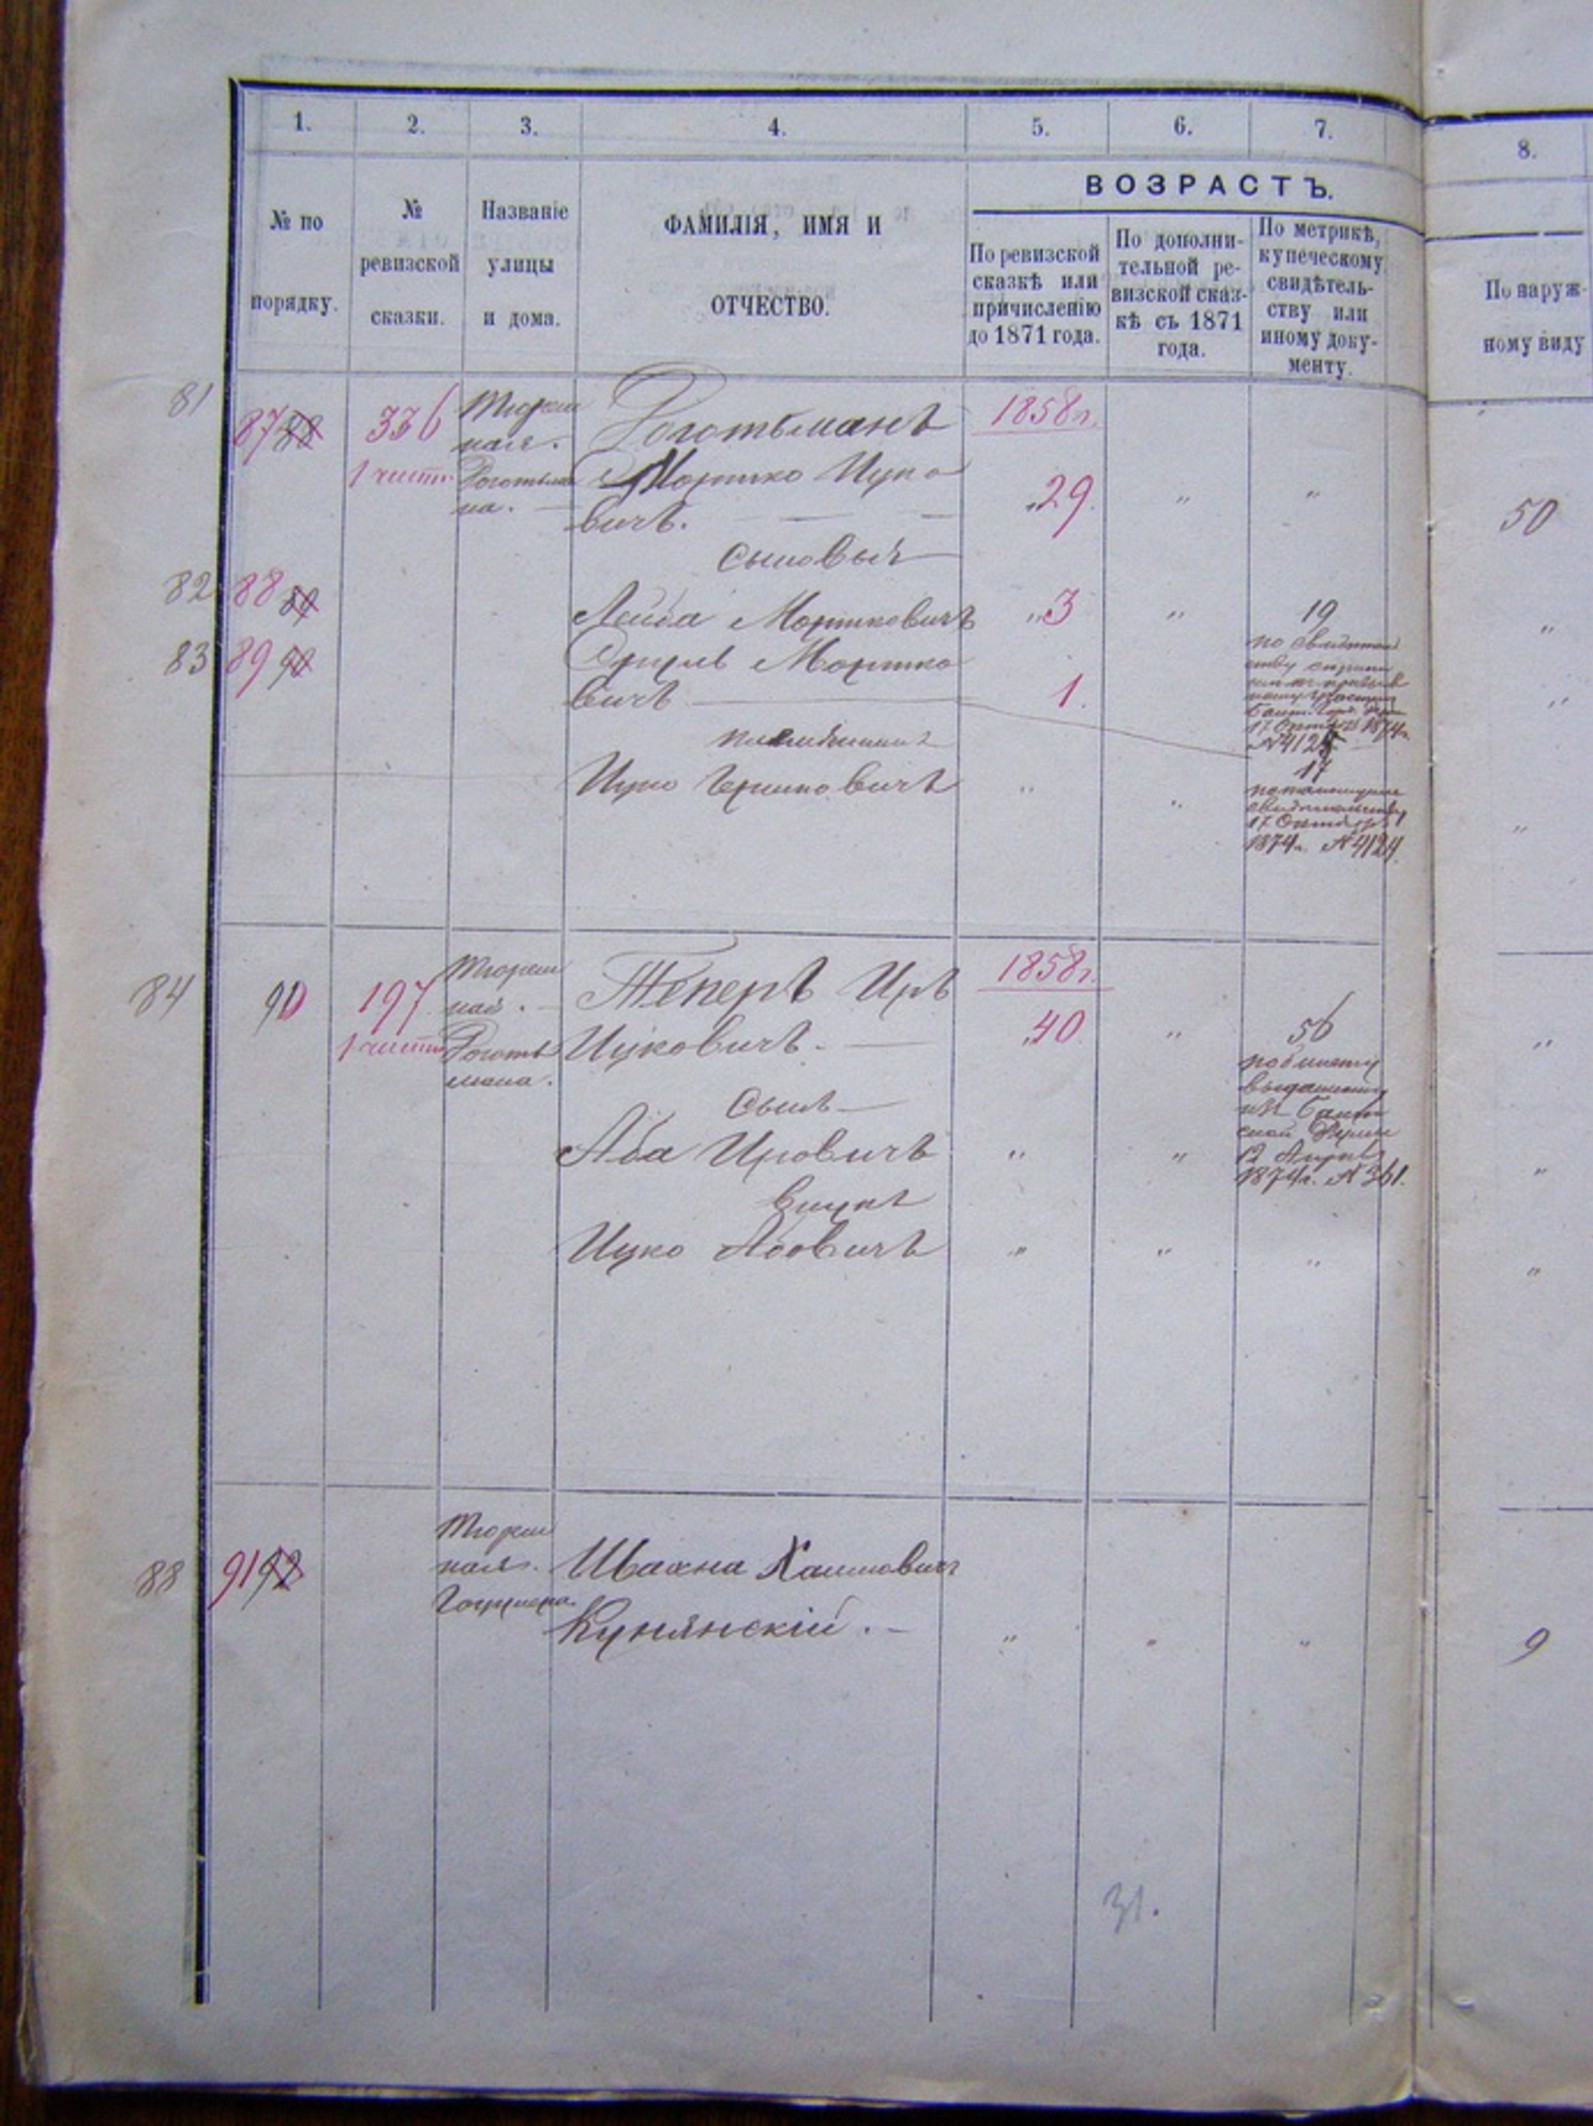 1.
2.
3.
4.
5.
6.
7.
8.
№ по
порядку.
№
ревизской
сказки.
Названіе
улицы
и дома.
ФАМИЛІЯ, ИМЯ И
ОТЧЕСТВО.
ВОЗРАСТЪ.
По ревизской
сказкѣ или
причисленію
до 1871 года.
По дополни-
тельной ре-
визской сказ-
кѣ съ 1871
года.
По метрикѣ,
купеческому
свидѣтель-
ству или
иному доку-
менту.
По наруж-
ному виду
81
87 88
336
1 части
Тюрем
ная.
Роготьма
на.
Роготьманъ
Мортко Ицко
вичъ.
1858 г.
29.
"
"
50
сыновья
82
88 89
Лейба Мортковичъ
" 3
"
19
"
83
89 90
Сруль Мортко
вичъ
1.
17 Октября 1874 г.
№ 4125
"
племянникъ
Ицко Гершковичъ
"
"
17
свидѣтельству
17 Октября
1874 г. № 4124.
"
84
90
197
1 части
Тюрем
ная.
Роготь
мана.
Теперъ Иръ
Ицковичъ.
1858 г.
40.
"
56
по билету
выданному
изъ Балт
ской Управы
12 Апрѣля
1874 г. № 361.
"
Сынъ
Аба Ировичъ
"
"
"
внукъ
Ицко Абовичъ
"
"
"
"
88
91 92
Тюрем
ная.
Ивахна Хаимович
Кунянскій.
"
"
"
9
31.